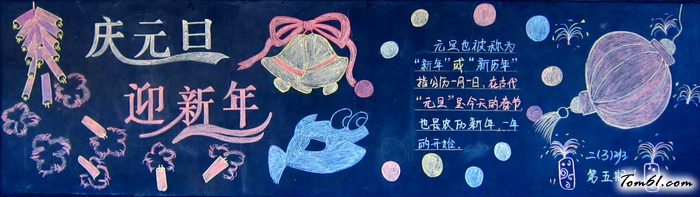 庆元旦
迎新年
元旦也被称为
“新年”或“新历年”
指公历一月一日，在古代
“元旦”是今天的春节
也是农历新年，一年
的开始.
二(3)班
第五期
Tom61.com